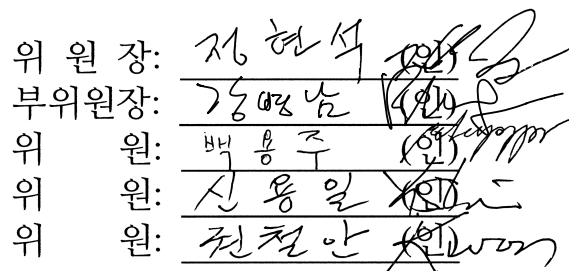 위 원 장: 정현석 (인)
부위원장: 강명남 (인)
위 원: 백용주 (인)
위 원: 신용일 (인)
위 원: 권철안 (인)